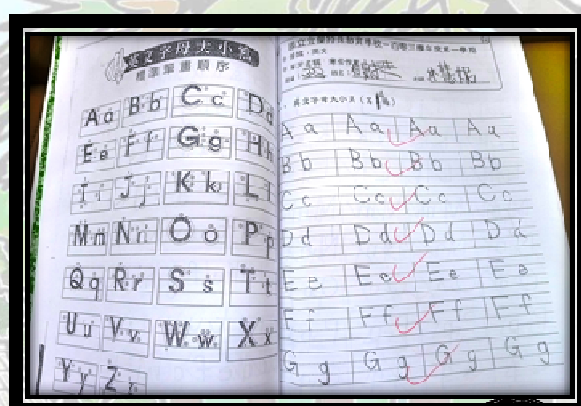 英文字母大小寫
標準筆畫順序
Aa Bb Cc Dd
Ee Ff Gg Hh
Ii Jj Kk Ll
Mm Nn Oo Pp
Qq Rr Ss Tt
Uu Vv Ww Xx
Yy Zz
英文字母大小寫
Aa Aa Aa Aa
Bb Bb Bb Bb
Cc Cc Cc Cc
Dd Dd Dd Dd
Ee Ee Ee Ee
Ff Ff Ff Ff
Gg Gg Gg Gg